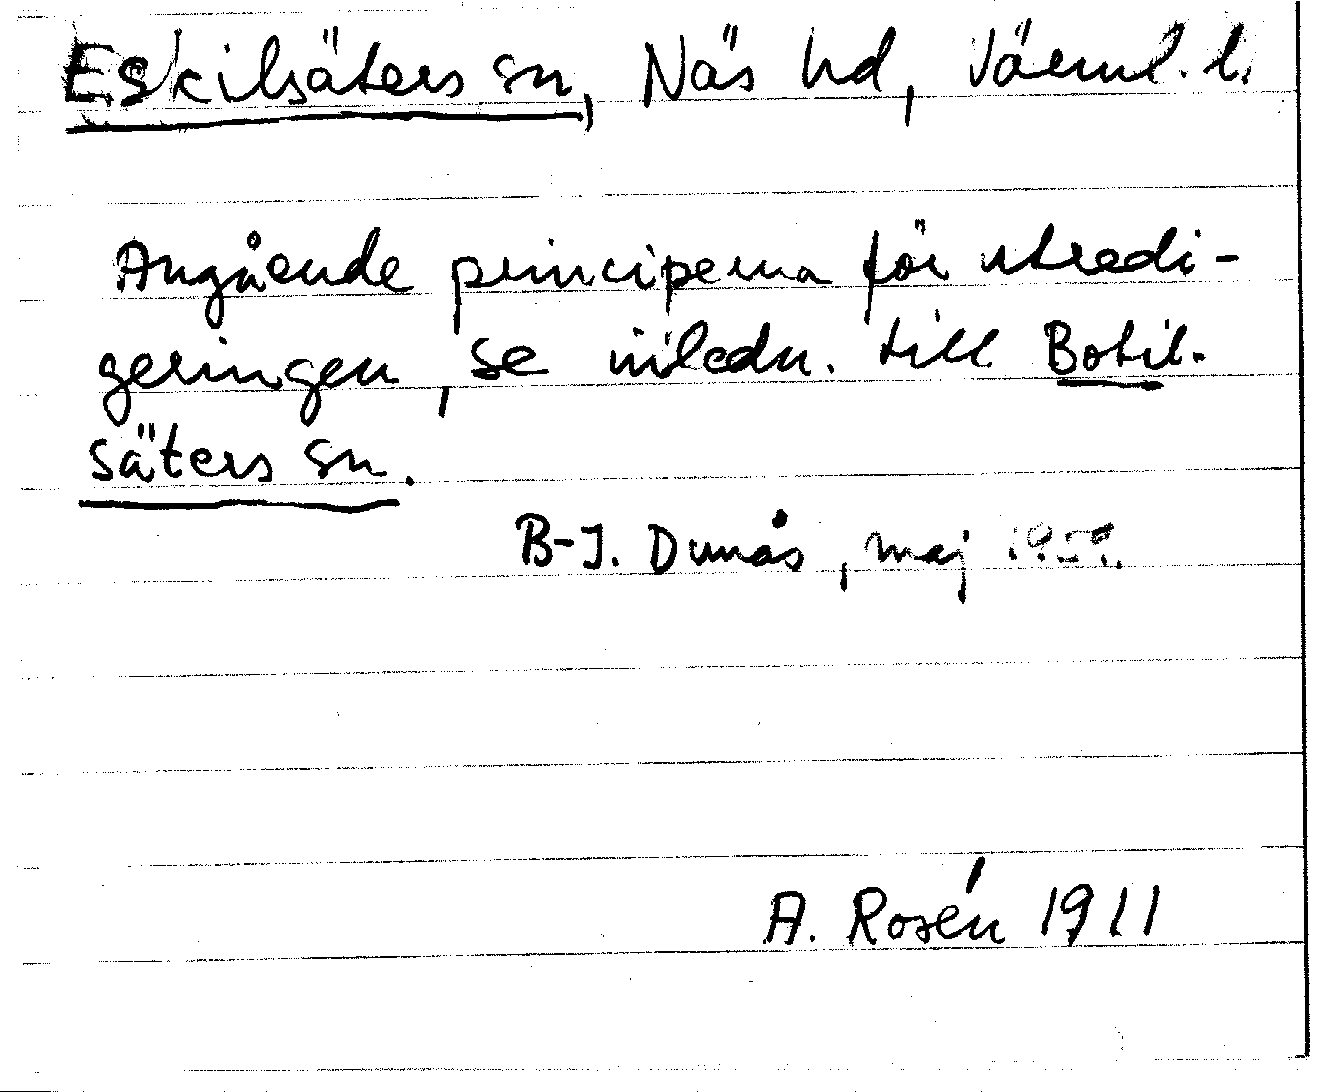 Eskilsäters sn, Näs hd, Värml. l.
Angående principerna för utredi-
geringen, se inledn. till Botil-
säters sn.
B-I. Dunås, maj 1959.
A. Rosén 1911